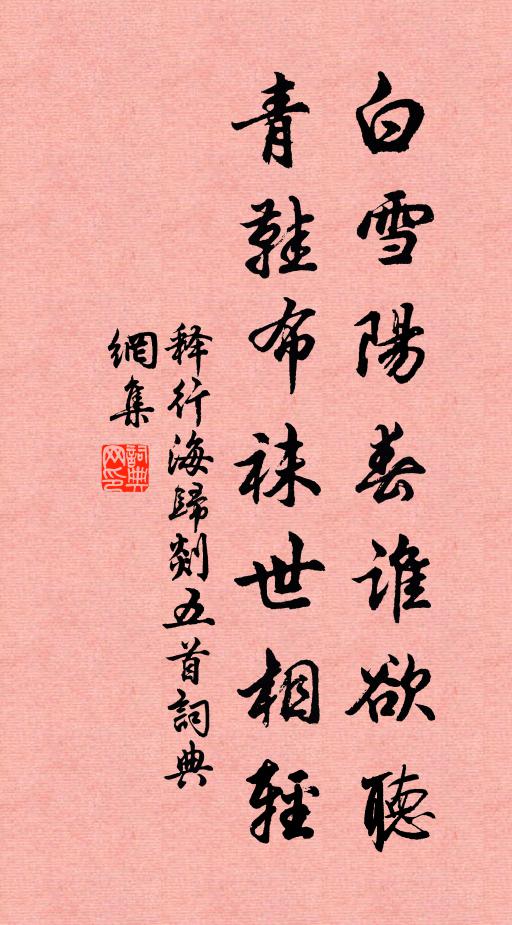 白雪陽春誰欲聽
青鞋布袜世相輕
释行海歸剡五首詞典
網集
詞典
网印